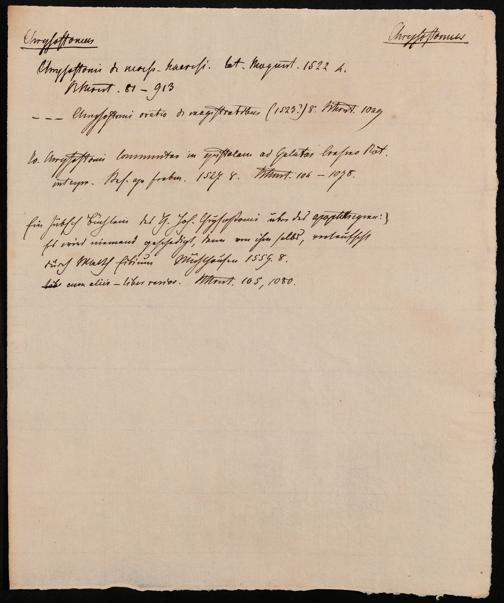 Chrysostomus
Chrysostomus
Chrysostomi de lat. Mogunt. 1522 4.
81 – 913
Chrysostomi oratio de magistratibus (1523.) 8.
Io. Chrysostomi Commentar in epistolam ad Galatas Erasmo Rot.
interpr. Bas. ap. Froben. 1527. 8. 106 – 1078.
Ein hübsch Büchlein des H. Joh. Chrysostomi über das
Es wird niemand geschedigt, denn von ihm selbs, verteutscht
durch Mühlhausen 1559. 8.
cum aliis – liber rarior. 105, 1080.